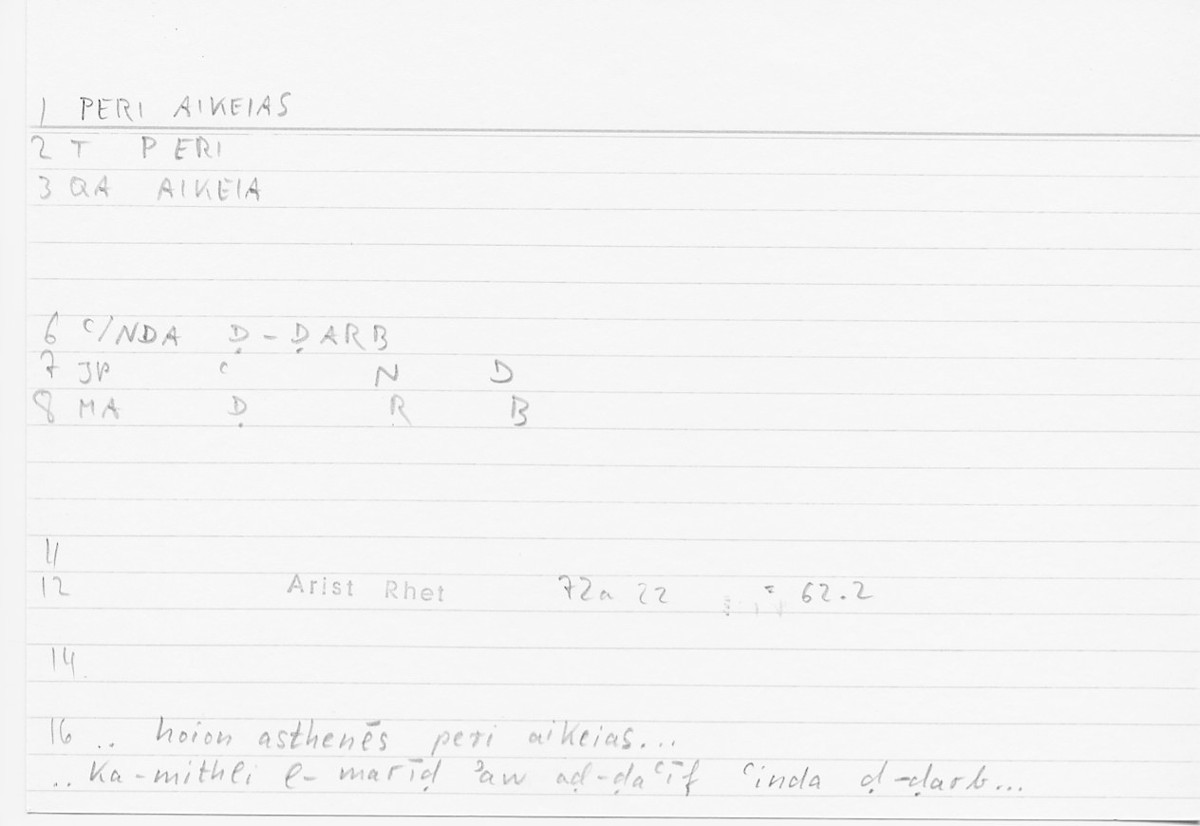 1 PERI AIKEIAS
2 T PERI
3 QA AIKEIA
6 ʿINDA Ḍ-ḌARB
7 JP ʿ N D
8 MA Ḍ R B
11
12 Arist Rhet 72a 22 = 62.2
14
16 .. hoion asthenēs peri aikeias...
.. Ka-mithli l-marīḍ ʾaw aḍ-ḍaʿīf ʿinda ḍ-ḍarb...